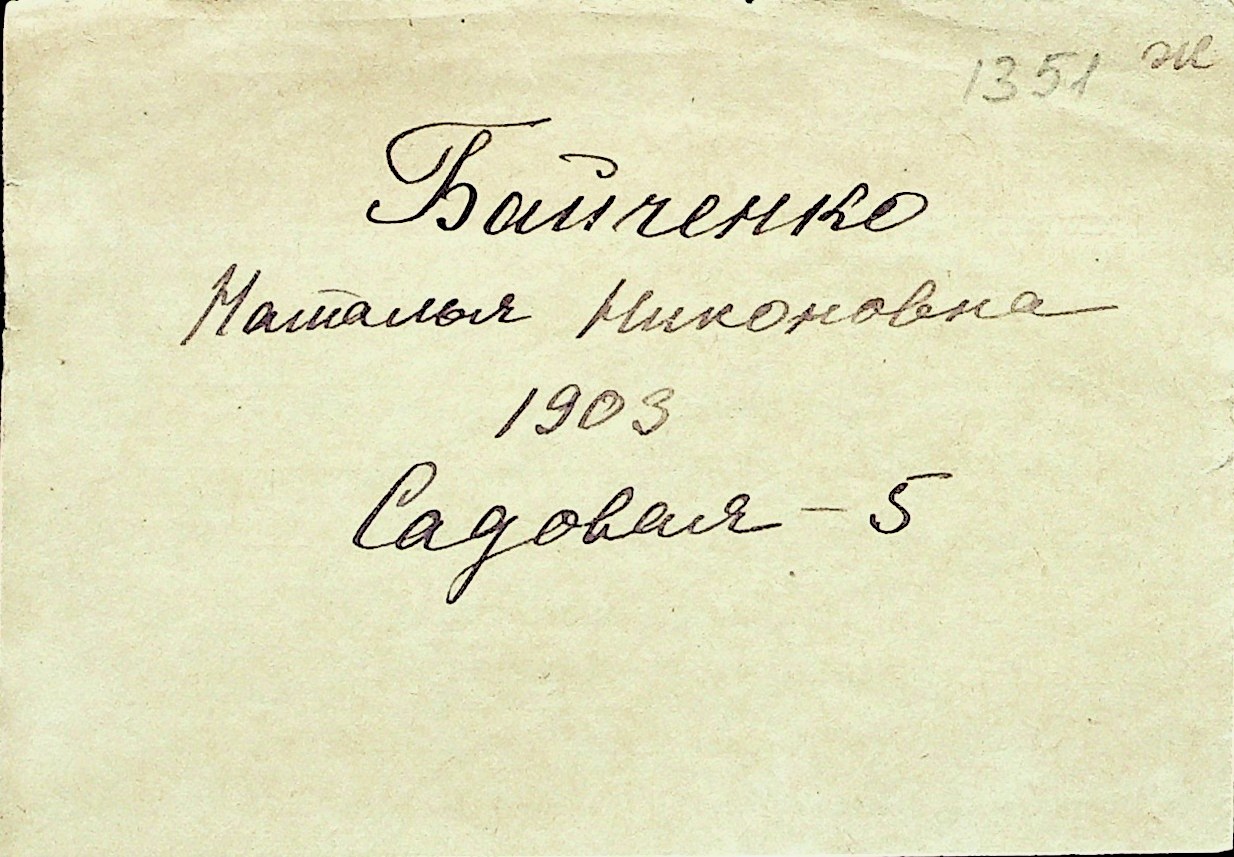 1351 ж
Байченко
Наталья Никоновна
1903
Садовая - 5